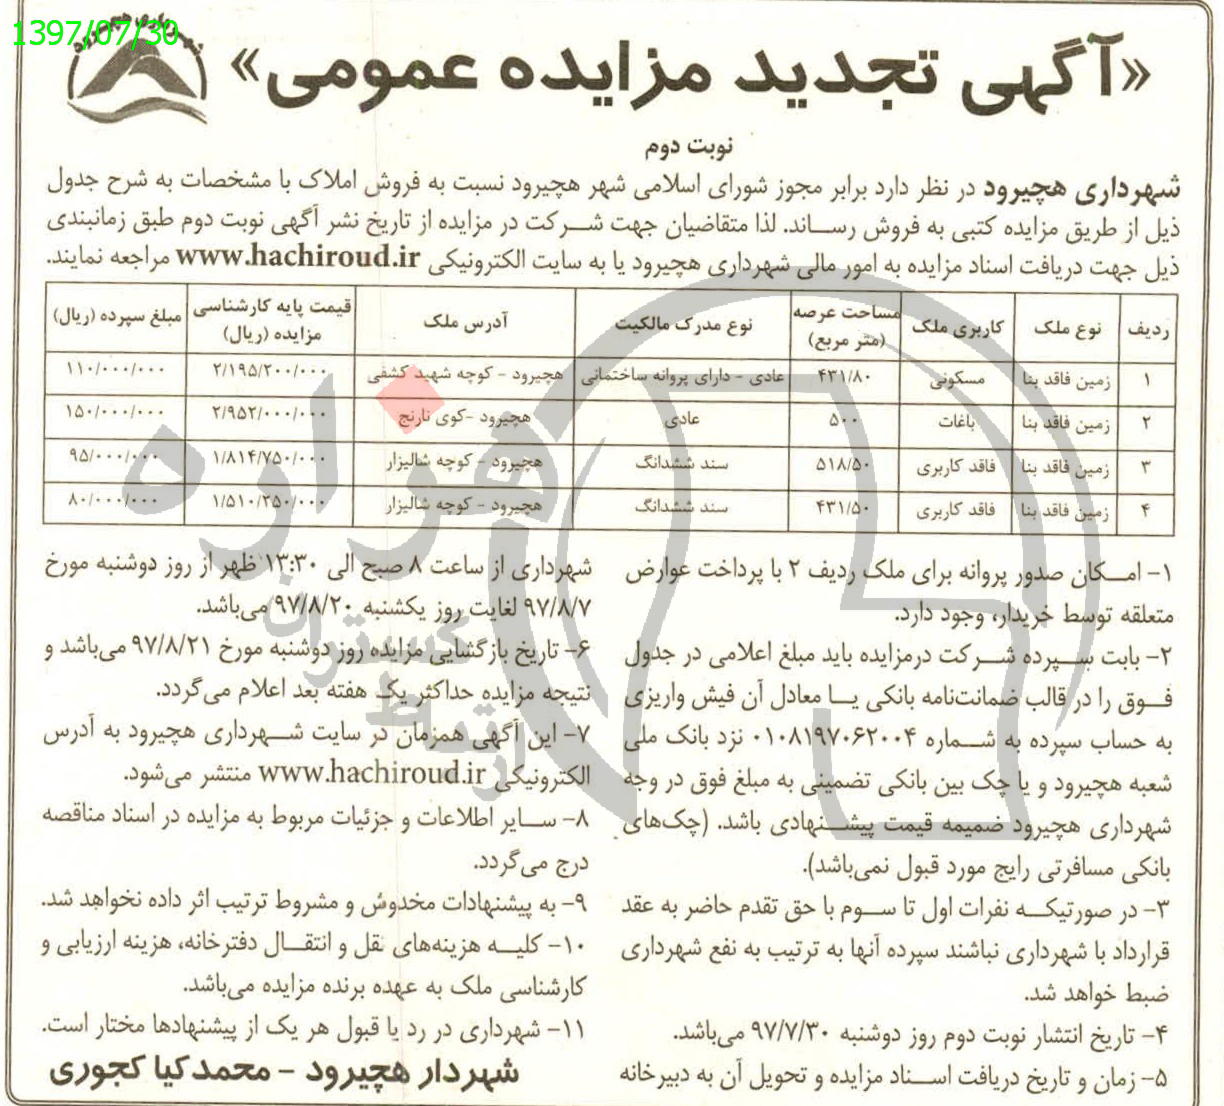 1397/07/30
شهرداری هچیرود
«آگهی تجدید مزایده عمومی»
نوبت دوم
شهرداری هچیرود در نظر دارد برابر مجوز شورای اسلامی شهر هچیرود نسبت به فروش املاک با مشخصات به شرح جدول
ذیل از طریق مزایده کتبی به فروش رساند. لذا متقاضیان جهت شرکت در مزایده از تاریخ نشر آگهی نوبت دوم طبق زمانبندی
ذیل جهت دریافت اسناد مزایده به امور مالی شهرداری هچیرود یا به سایت الکترونیکی www.hachiroud.ir مراجعه نمایند.
ردیف نوع ملک کاربری ملک مساحت عرصه (متر مربع) نوع مدرک مالکیت آدرس ملک قیمت پایه کارشناسی مزایده (ریال) مبلغ سپرده (ریال)
۱ زمین فاقد بنا مسکونی ۴۳۱/۸۰ عادی - دارای پروانه ساختمانی هچیرود - کوچه شهید کشفی ۲/۱۹۵/۲۰۰/۰۰۰ ۱۱۰/۰۰۰/۰۰۰
۲ زمین فاقد بنا باغات ۵۰۰ عادی هچیرود -کوی نارنج ۲/۹۵۲/۰۰۰/۰۰۰ ۱۵۰/۰۰۰/۰۰۰
۳ زمین فاقد بنا فاقد کاربری ۵۱۸/۵۰ سند ششدانگ هچیرود - کوچه شالیزار ۱/۸۱۴/۷۵۰/۰۰۰ ۹۵/۰۰۰/۰۰۰
۴ زمین فاقد بنا فاقد کاربری ۴۳۱/۵۰ سند ششدانگ هچیرود - کوچه شالیزار ۱/۵۱۰/۲۵۰/۰۰۰ ۸۰/۰۰۰/۰۰۰
۱- امکان صدور پروانه برای ملک ردیف ۲ با پرداخت عوارض
متعلقه توسط خریدار، وجود دارد.
۲- بابت سپرده شرکت درمزایده باید مبلغ اعلامی در جدول
فوق را در قالب ضمانت‌نامه بانکی یا معادل آن فیش واریزی
به حساب سپرده به شماره ۰۱۰۸۱۹۷۰۶۲۰۰۴ نزد بانک ملی
شعبه هچیرود و یا چک بین بانکی تضمینی به مبلغ فوق در وجه
شهرداری هچیرود ضمیمه قیمت پیشنهادی باشد. (چک‌های
بانکی مسافرتی رایج مورد قبول نمی‌باشد).
۳- در صورتیکه نفرات اول تا سوم با حق تقدم حاضر به عقد
قرارداد با شهرداری نباشند سپرده آنها به ترتیب به نفع شهرداری
ضبط خواهد شد.
۴- تاریخ انتشار نوبت دوم روز دوشنبه ۹۷/۷/۳۰ می‌باشد.
۵- زمان و تاریخ دریافت اسناد مزایده و تحویل آن به دبیرخانه
شهرداری از ساعت ۸ صبح الی ۱۳:۳۰ ظهر از روز دوشنبه مورخ
۹۷/۸/۷ لغایت روز یکشنبه ۹۷/۸/۲۰ می‌باشد.
۶- تاریخ بازگشایی مزایده روز دوشنبه مورخ ۹۷/۸/۲۱ می‌باشد و
نتیجه مزایده حداکثر یک هفته بعد اعلام می‌گردد.
۷- این آگهی همزمان در سایت شهرداری هچیرود به آدرس
الکترونیکی www.hachiroud.ir منتشر می‌شود.
۸- سایر اطلاعات و جزئیات مربوط به مزایده در اسناد مناقصه
درج می‌گردد.
۹- به پیشنهادات مخدوش و مشروط ترتیب اثر داده نخواهد شد.
۱۰- کلیه هزینه‌های نقل و انتقال دفترخانه، هزینه ارزیابی و
کارشناسی ملک به عهده برنده مزایده می‌باشد.
۱۱- شهرداری در رد یا قبول هر یک از پیشنهادها مختار است.
شهردار هچیرود - محمدکیا کجوری
هزاره
گستران
ارتباط